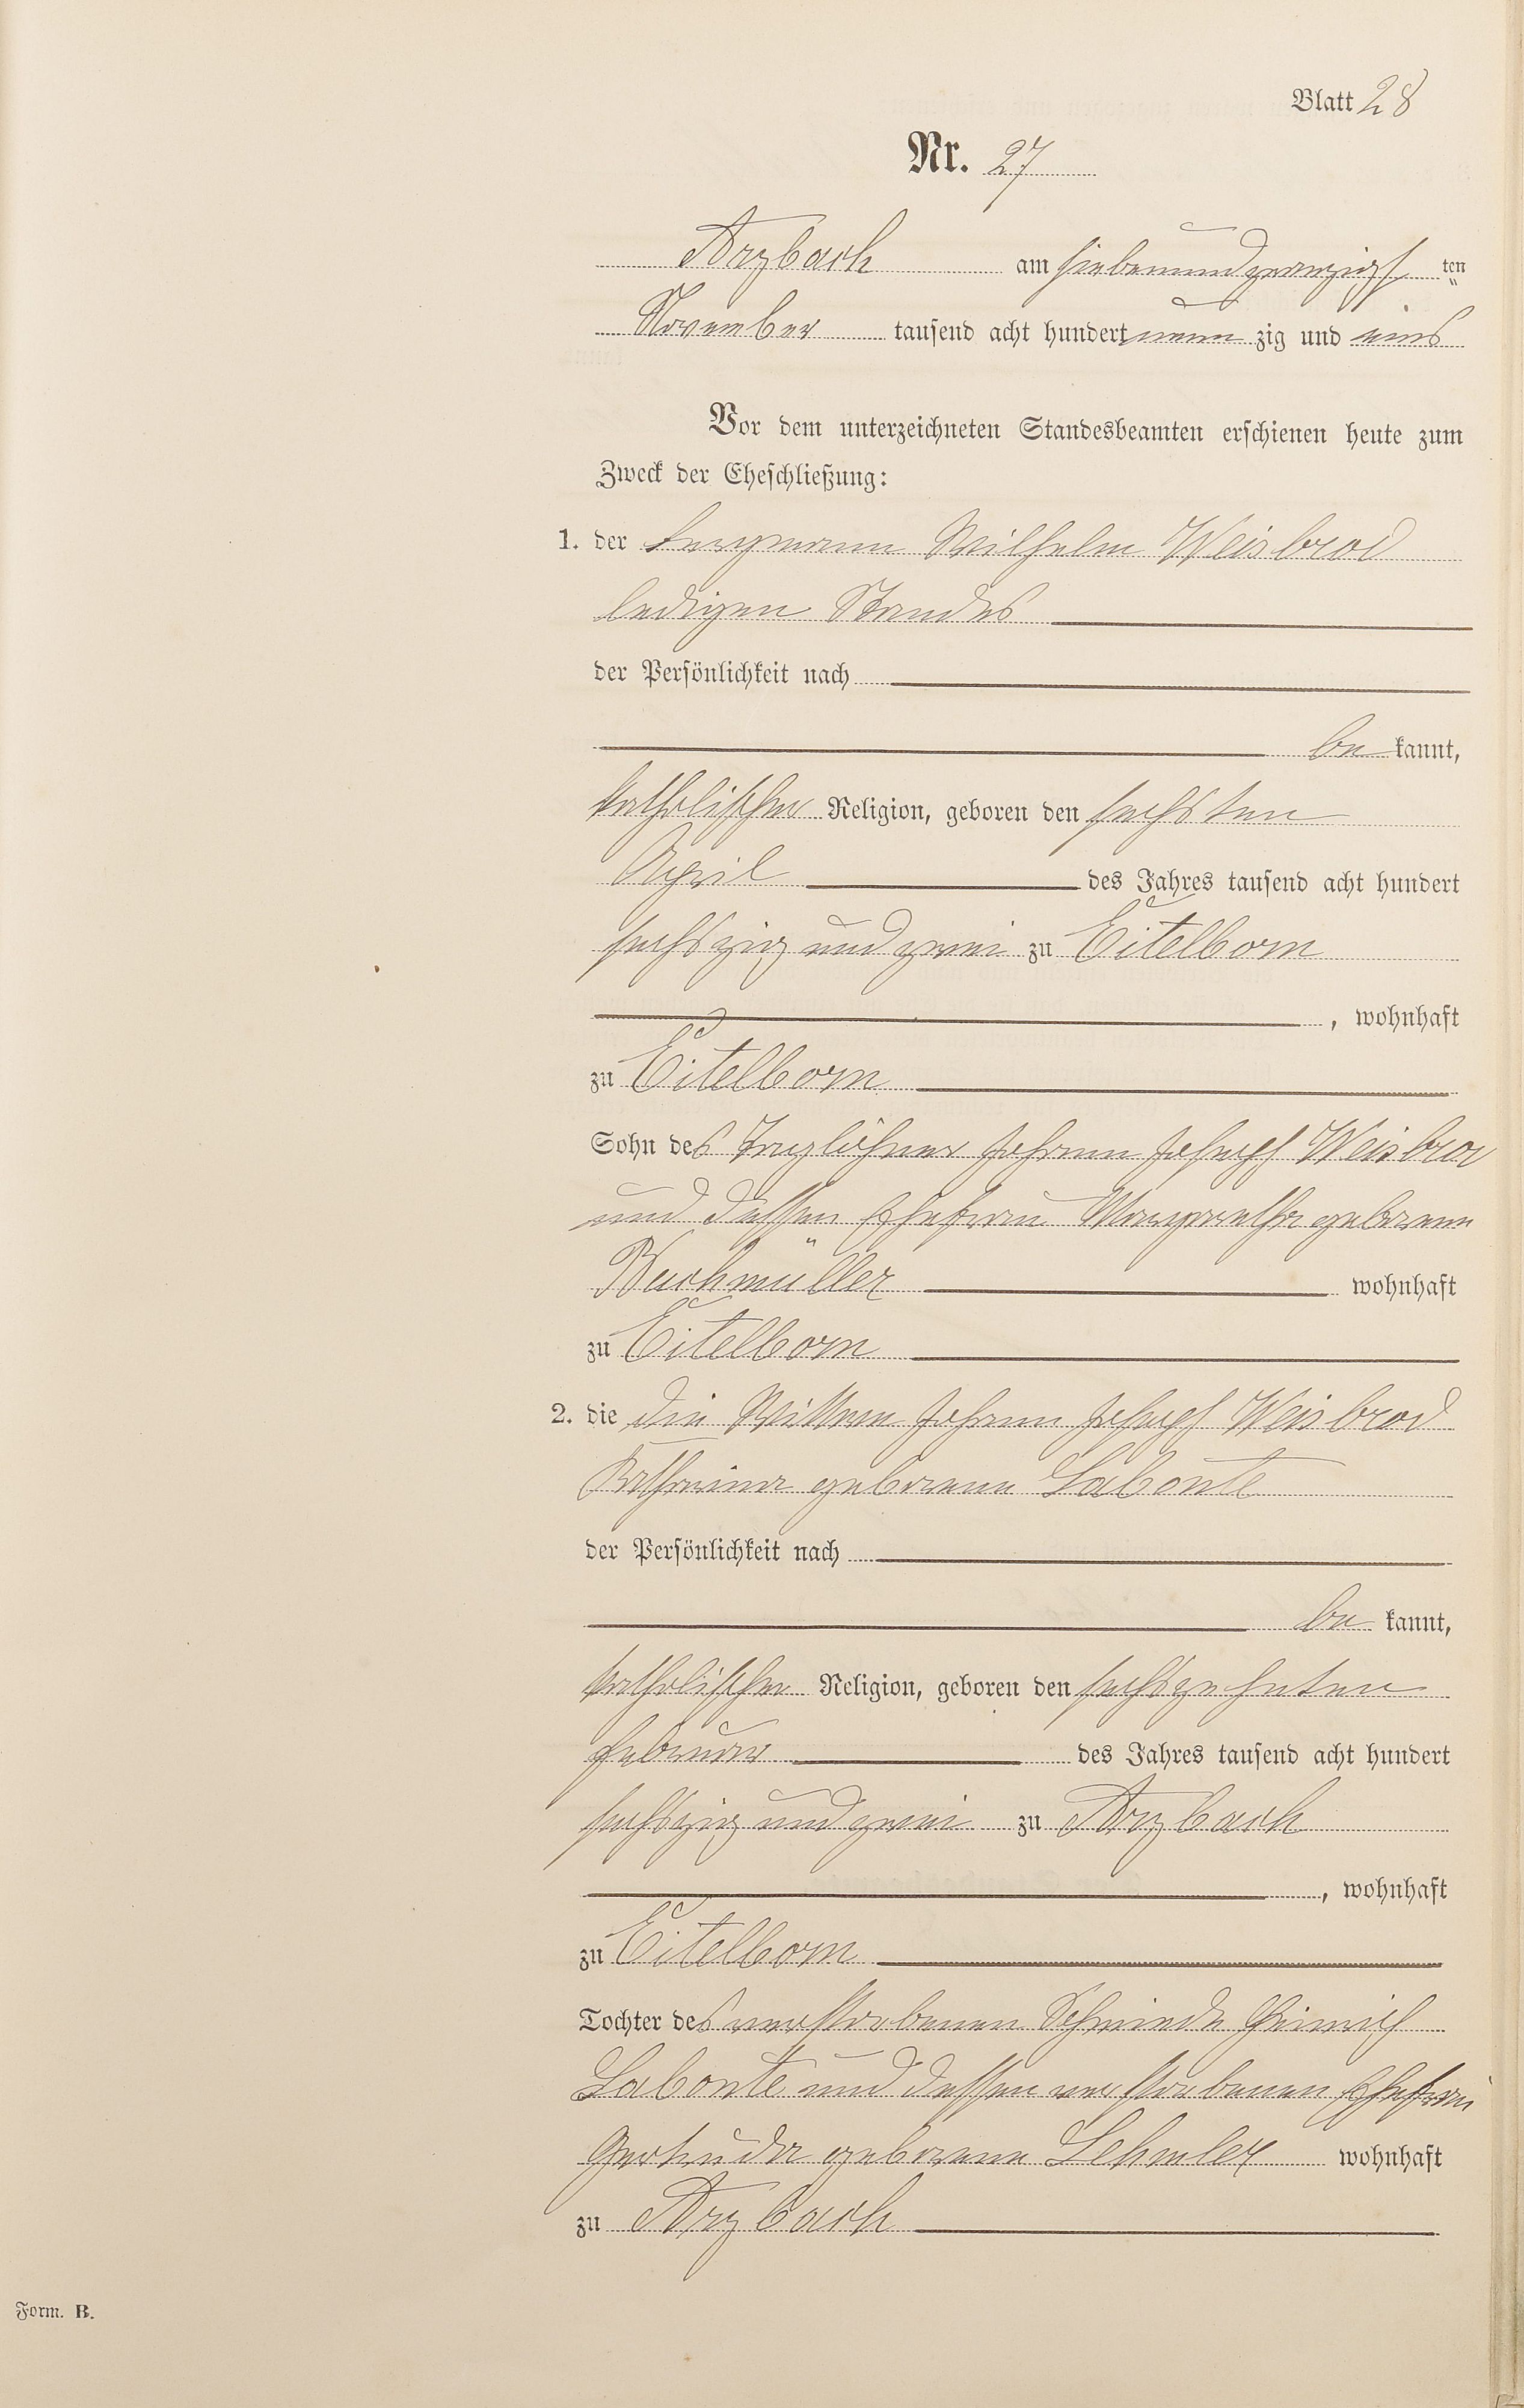 Blatt 28
Nr. 27
Arzbach am siebenundzwanzigsten
November tausend acht hundert neun zig und eins
Vor dem unterzeichneten Standesbeamten erschienen heute zum
Zweck der Eheschließung:
1. der Bergmann Wilhelm Weisbrod
ledigen Standes
der Persönlichkeit nach
be kannt,
katholischer Religion, geboren den sechsten
April des Jahres tausend acht hundert
sechszig und zwei zu Eitelborn
, wohnhaft
zu Eitelborn
Sohn des Taglöhner Johann Joseph Weisbrod
und dessen Ehefrau Margaretha geborene
Bachmüller wohnhaft
zu Eitelborn
2. die die Wittwe Johann Joseph Weisbrod
Katharina geborene Labonte
der Persönlichkeit nach
be kannt,
katholischer Religion, geboren den sechszehnten
Februar des Jahres tausend acht hundert
sechszig und zwei zu Arzbach
, wohnhaft
zu Eitelborn
Tochter des verstorbenen Schmieds Heinrich
Labonte und dessen verstorbenen Ehefrau
Gertruda geborene Lehmler wohnhaft
zu Arzbach
Form. B.